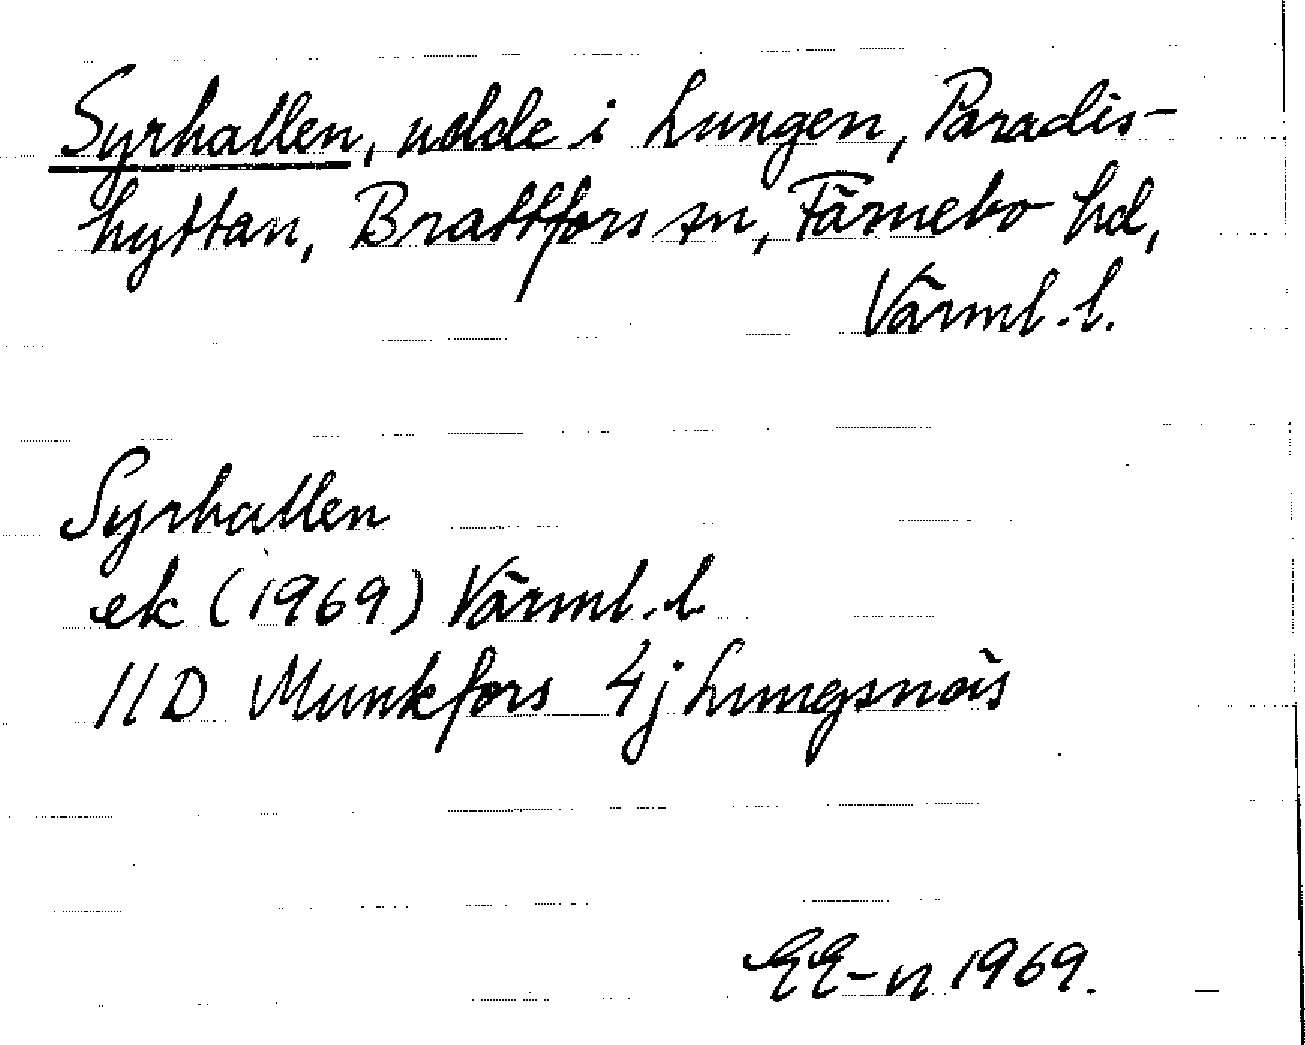 Syrhallen, udde i Lungen, Paradis-
hyttan, Brattfors sn, Färnebo hd,
Värml. l.
Syrhallen
ek (1969) Värml. l.
11D Munkfors 4j Lungsnäs
EE-n 1969.